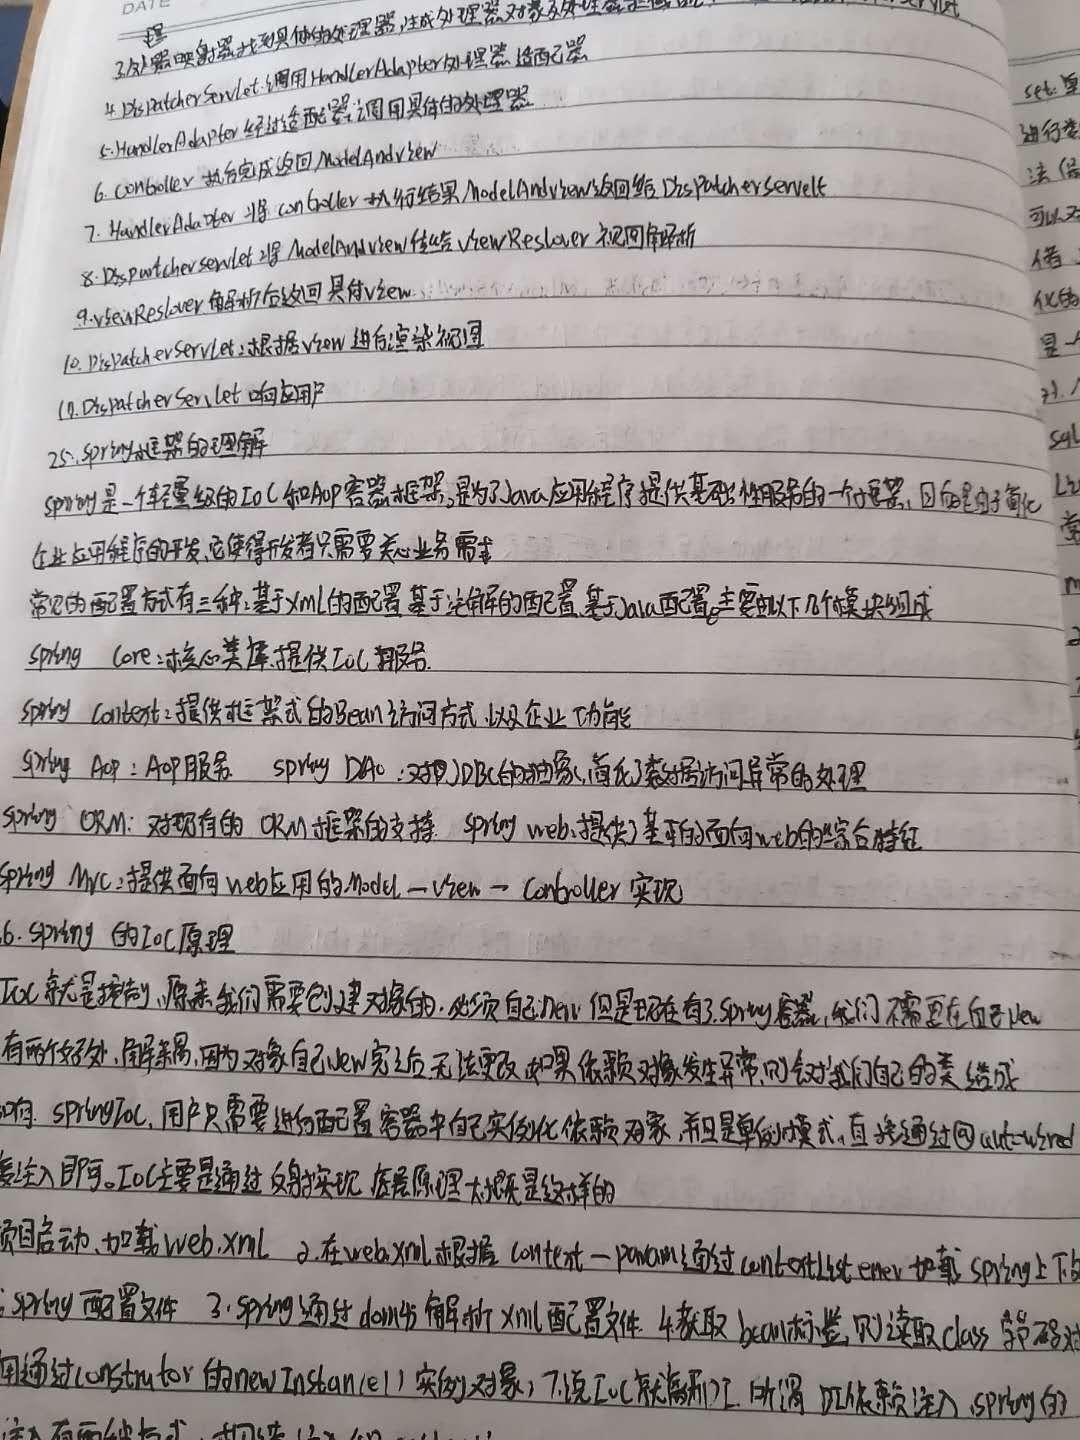 DATE
理
3.处理器映射器找到具体的处理器,生成处理器对象及处理器
4.DispatcherServlet调用HandlerAdapter处理器适配器
5.HandlerAdapter经过适配器调用具体的处理器
6.Controller执行完成返回ModelAndView
7.HandlerAdapter将controller执行结果ModelAndView返回给DispatcherServelt
8.Dispatcherservlet将ModelAndView传给ViewReslover视图解析
9.VieiwReslover解析后返回具体View
10.DispatcherServlet:根据View进行渲染视图
11.DispatcherServlet响应用户
25.spring框架的理解
spring是一个轻量级的IoC和AOP容器框架,是为了Java应用程序提供基础性服务的一个框架,目的是用于简化
企业应用程序的开发,它使得开发者只需要关心业务需求
常见的配置方式有三种:基于xml的配置 基于注解的配置 基于Java配置。主要由以下几个模块组成
spring Core:核心类库,提供IoC服务.
spring Context:提供框架式的Bean访问方式,以及企业功能
spring AOP:AOP服务 spring DAO:对JDBC的抽象,简化了数据访问异常的处理
spring ORM:对现有的ORM框架的支持 spring web:提供了基本的面向web的综合特征
spring Mvc:提供面向web应用的Model-View-Controller实现
6.spring 的IoC原理
IoC就是控制,原来我们需要创建对象的,必须自己new 但是现在有了spring容器,我们不需要在自己new
有两个好处,解耦,因为对象自己new完之后无法更改 如果依赖对象发生异常,则会对我们自己的类造成
响 springIoC,用户只需要进行配置 容器中自己实例化依赖对象,而且是单例模式,直接通过@autowired
注入即可。IoC主要是通过反射实现 底层原理大概是这样的
项目启动,加载web.xml 2.在web.xml根据context-param通过contextListener加载spring上下
spring配置文件 3.spring通过dom4j解析xml配置文件 4.获取bean标签,则读取class 字节码对
用通过constrator的newInstance()实例对象) 7.说IoC就离不DI.所谓DI依赖注入,spring的
注入有两种方式
set
进行
法
可以
化的
是一
sql